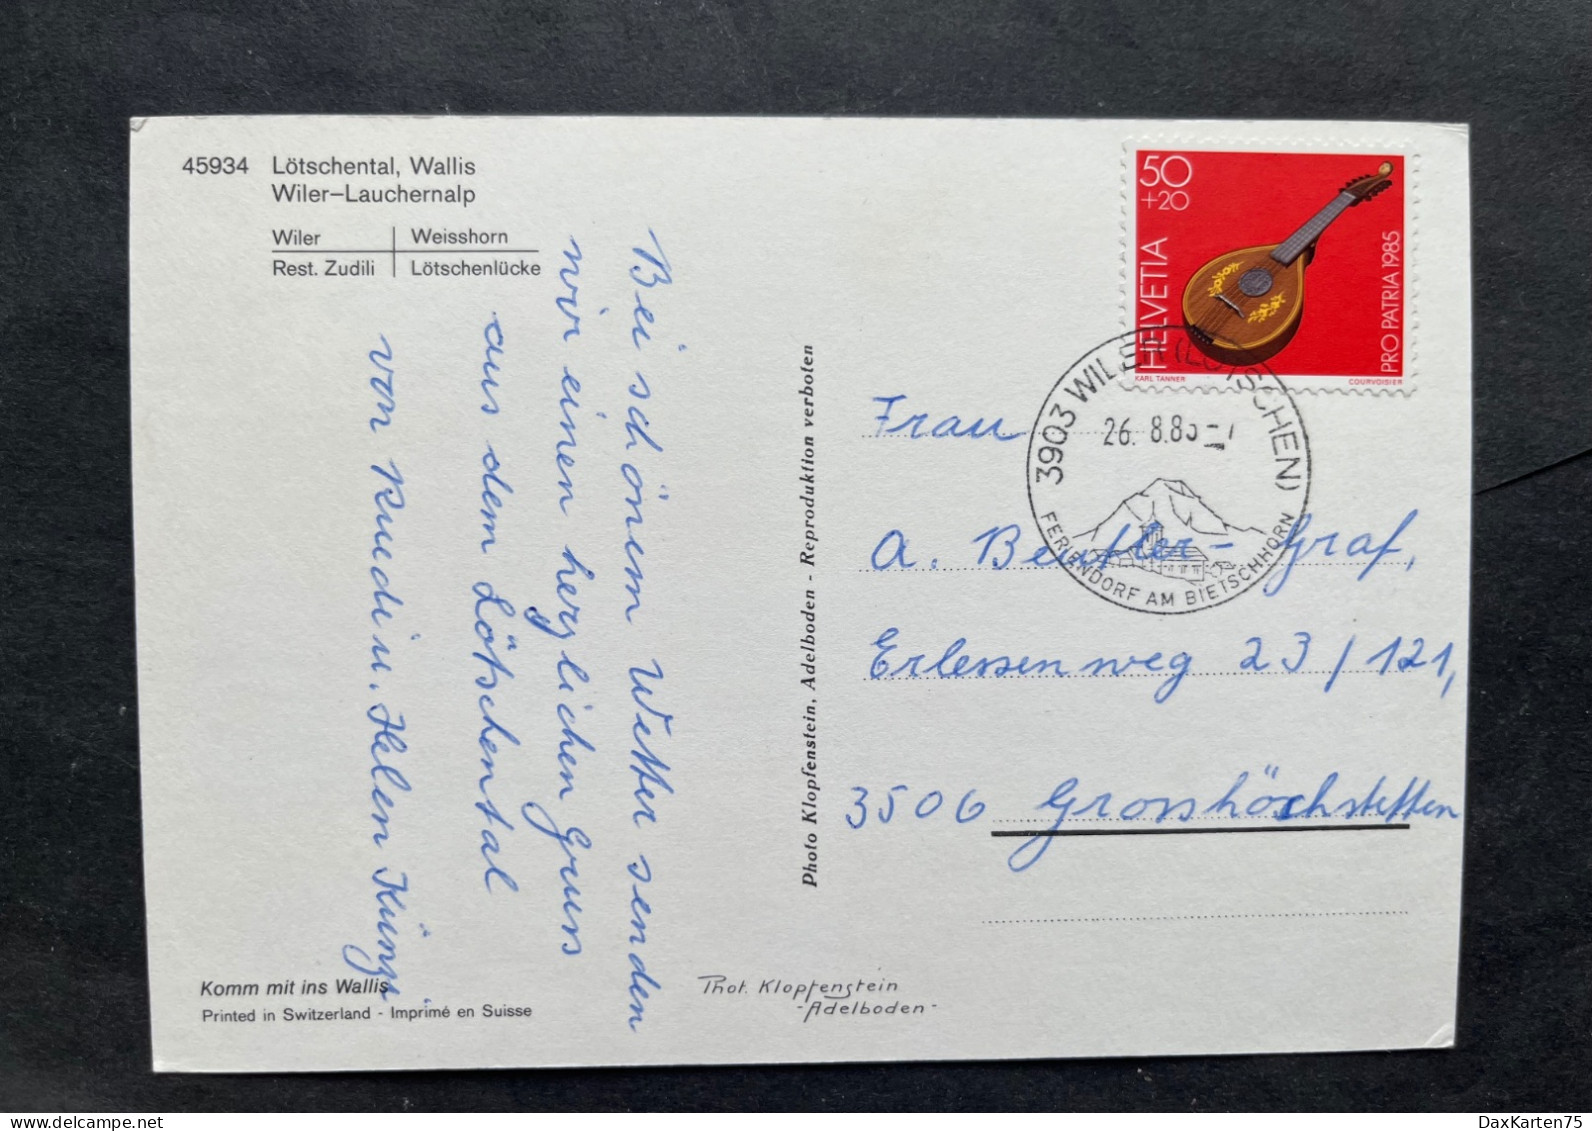 45934 Lötschental, Wallis
Wiler–Lauchernalp
Wiler | Weisshorn
Rest. Zudili | Lötschenlücke
Bei schönem Wetter senden
wir einen herzlichen Gruss
aus dem Lötschental
von Ruedi u. Helen Künzi
Komm mit ins Wallis
Printed in Switzerland - Imprimé en Suisse
Photo Klopfenstein, Adelboden - Reproduktion verboten
Phot. Klopfenstein
-Adelboden-
50
+20
HELVETIA
PRO PATRIA 1985
KARL TANNER
COURVOISIER
3903 WILER (LÖTSCHEN)
26. 8.85
FERIENDORF AM BIETSCHHORN
Frau
A. Beutler-Graf,
Erlessenweg 23/121,
3506 Grosshöchstetten
delcampe.net
DaxKarten75